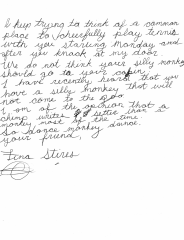 I keep trying to think of a common
place to cheerfully play tennis
with you starting Monday and
after you knock at my door.
We do not think your silly monkey
should go to your cabin.
I have recently heard that you
have a silly monkey that will
not come to the door
I am of the opinion that a
chimp writes monkey most of the time.
So dance monkey dance.
your friend,
Tina Stires